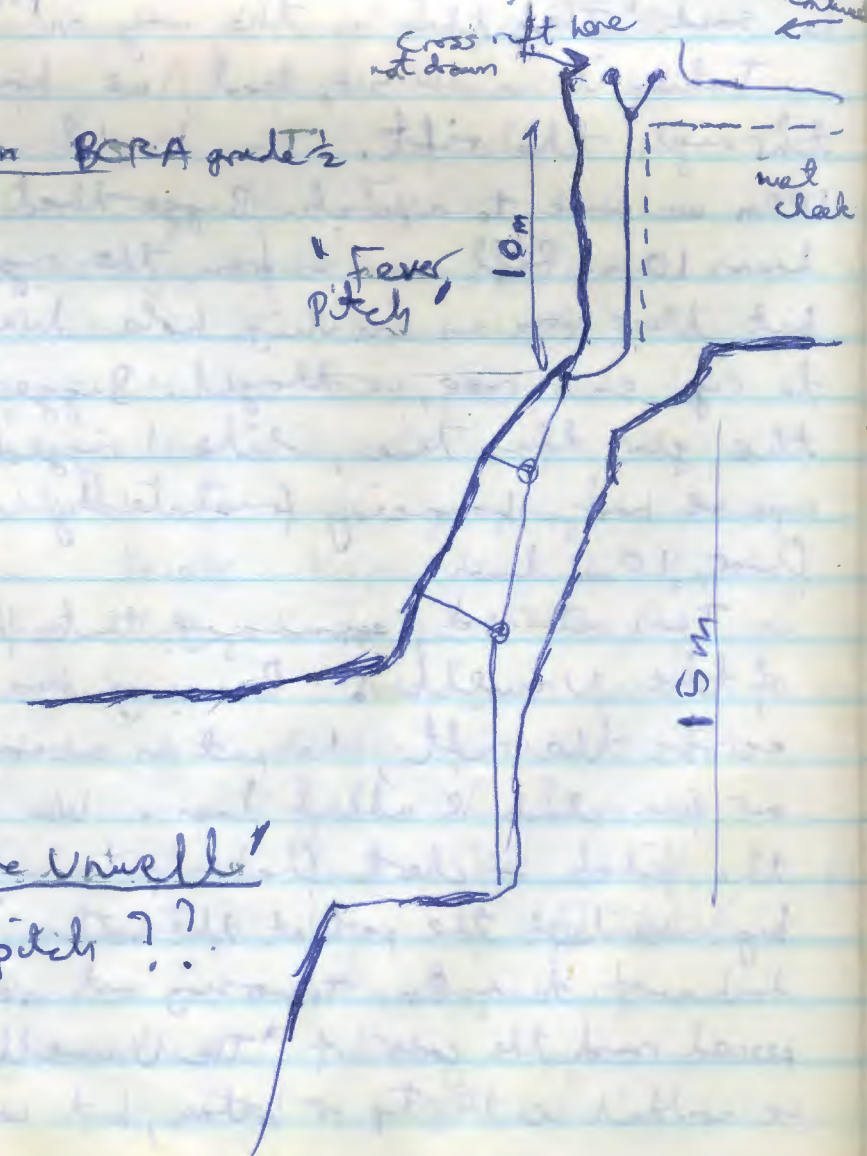 Cross rift here
not drawn
BCRA grade 1½
wet
cheek
10m
"Fever
Pitch"
15m
Unwell'
pitch ??